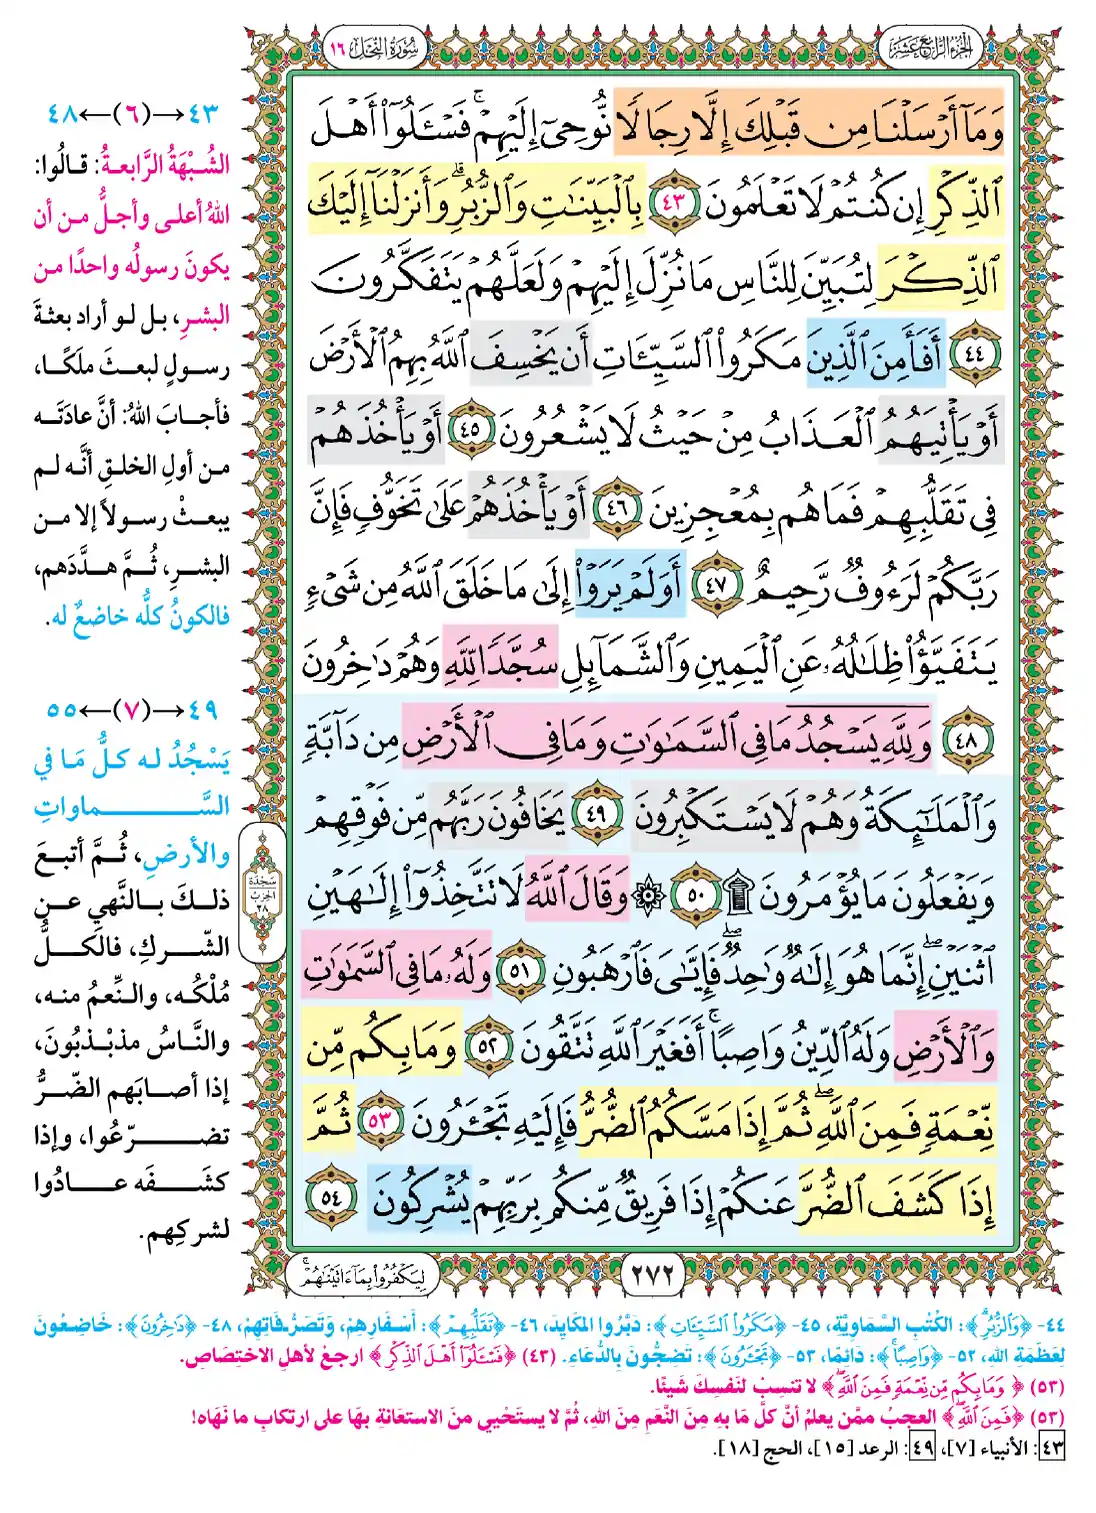 الجزء الرابع عشر
سورة النحل ١٦
وَمَآ أَرْسَلْنَا مِن قَبْلِكَ إِلَّا رِجَالًا نُّوحِىٓ إِلَيْهِمْ ۚ فَسْـَٔلُوٓا۟ أَهْلَ
ٱلذِّكْرِ إِن كُنتُمْ لَا تَعْلَمُونَ ٤٣ بِٱلْبَيِّنَـٰتِ وَٱلزُّبُرِ ۗ وَأَنزَلْنَآ إِلَيْكَ
ٱلذِّكْرَ لِتُبَيِّنَ لِلنَّاسِ مَا نُزِّلَ إِلَيْهِمْ وَلَعَلَّهُمْ يَتَفَكَّرُونَ
٤٤ أَفَأَمِنَ ٱلَّذِينَ مَكَرُوا۟ ٱلسَّيِّـَٔاتِ أَن يَخْسِفَ ٱللَّهُ بِهِمُ ٱلْأَرْضَ
أَوْ يَأْتِيَهُمُ ٱلْعَذَابُ مِنْ حَيْثُ لَا يَشْعُرُونَ ٤٥ أَوْ يَأْخُذَهُمْ
فِى تَقَلُّبِهِمْ فَمَا هُم بِمُعْجِزِينَ ٤٦ أَوْ يَأْخُذَهُمْ عَلَىٰ تَخَوُّفٍ فَإِنَّ
رَبَّكُمْ لَرَءُوفٌ رَّحِيمٌ ٤٧ أَوَلَمْ يَرَوْا۟ إِلَىٰ مَا خَلَقَ ٱللَّهُ مِن شَىْءٍ
يَتَفَيَّؤُا۟ ظِلَـٰلُهُۥ عَنِ ٱلْيَمِينِ وَٱلشَّمَآئِلِ سُجَّدًا لِّلَّهِ وَهُمْ دَٰخِرُونَ
٤٨ وَلِلَّهِ يَسْجُدُ مَا فِى ٱلسَّمَـٰوَٰتِ وَمَا فِى ٱلْأَرْضِ مِن دَآبَّةٍ
وَٱلْمَلَـٰٓئِكَةُ وَهُمْ لَا يَسْتَكْبِرُونَ ٤٩ يَخَافُونَ رَبَّهُم مِّن فَوْقِهِمْ
وَيَفْعَلُونَ مَا يُؤْمَرُونَ ۩ ٥٠ ۞ وَقَالَ ٱللَّهُ لَا تَتَّخِذُوٓا۟ إِلَـٰهَيْنِ
ٱثْنَيْنِ ۖ إِنَّمَا هُوَ إِلَـٰهٌ وَٰحِدٌ ۖ فَإِيَّـٰىَ فَٱرْهَبُونِ ٥١ وَلَهُۥ مَا فِى ٱلسَّمَـٰوَٰتِ
وَٱلْأَرْضِ وَلَهُ ٱلدِّينُ وَاصِبًا ۚ أَفَغَيْرَ ٱللَّهِ تَتَّقُونَ ٥٢ وَمَا بِكُم مِّن
نِّعْمَةٍ فَمِنَ ٱللَّهِ ۖ ثُمَّ إِذَا مَسَّكُمُ ٱلضُّرُّ فَإِلَيْهِ تَجْـَٔرُونَ ٥٣ ثُمَّ
إِذَا كَشَفَ ٱلضُّرَّ عَنكُمْ إِذَا فَرِيقٌ مِّنكُم بِرَبِّهِمْ يُشْرِكُونَ ٥٤
٢٧٢
لِيَكْفُرُوا۟ بِمَآ ءَاتَيْنَـٰهُمْ ۚ
سجدة
الحزب
٢٨
٤٣→(٦)←٤٨
الشُّبْهَةُ الرَّابعةُ: قالُوا:
اللهُ أعلى وأجلُّ من أن
يكونَ رسولُه واحدًا من
البشرِ، بل لو أراد بعثةَ
رسولٍ لبعثَ ملَكًا،
فأجابَ اللهُ: أنَّ عادَتَه
من أولِ الخلقِ أنَّه لم
يبعثْ رسولاً إلا من
البشرِ، ثُمَّ هدَّدَهم،
فالكونُ كلُّه خاضعٌ له.
٤٩→(٧)←٥٥
يَسْجُدُ له كلُّ مَا في
السَّماواتِ
والأرضِ، ثُمَّ أتبعَ
ذلكَ بالنَّهيِ عن
الشِّركِ، فالكلُّ
مُلْكُه، والنِّعمُ منه،
والنَّاسُ مذبْذبُونَ،
إذا أصابَهم الضّرُّ
تضرّعُوا، وإذا
كشفَه عادُوا
لشركِهم.
٤٤- ﴿وَٱلزُّبُرِ﴾: الكُتُبِ السَّماوِيَّةِ، ٤٥- ﴿مَكَرُوا۟ ٱلسَّيِّـَٔاتِ﴾: دَبَّرُوا المَكَايِدَ، ٤٦- ﴿تَقَلُّبِهِمْ﴾: أَسْفَارِهِمْ، وَتَصَرُّفَاتِهِمْ، ٤٨- ﴿دَٰخِرُونَ﴾: خَاضِعُونَ
لِعَظَمَةِ اللهِ، ٥٢- ﴿وَاصِبًا﴾: دَائِمًا، ٥٣- ﴿تَجْـَٔرُونَ﴾: تَضِجُّونَ بِالدُّعَاءِ. (٤٣) ﴿فَسْـَٔلُوٓا۟ أَهْلَ ٱلذِّكْرِ﴾ ارجعْ لأهلِ الاختصَاصِ.
(٥٣) ﴿وَمَا بِكُم مِّن نِّعْمَةٍ فَمِنَ ٱللَّهِ ۖ﴾ لا تنسِبْ لنَفْسِكَ شَيئًا.
(٥٣) ﴿فَمِنَ ٱللَّهِ ۖ﴾ العجبُ ممَّن يعلمُ أنَّ كلَّ مَا بِه مِنَ النَّعَمِ مِنَ اللهِ، ثُمَّ لا يستَحْيي منَ الاستعَانةِ بهَا على ارتكَابِ ما نَهَاه!
٤٣: الأنبياء [٧]، ٤٩: الرعد [١٥]، الحج [١٨].